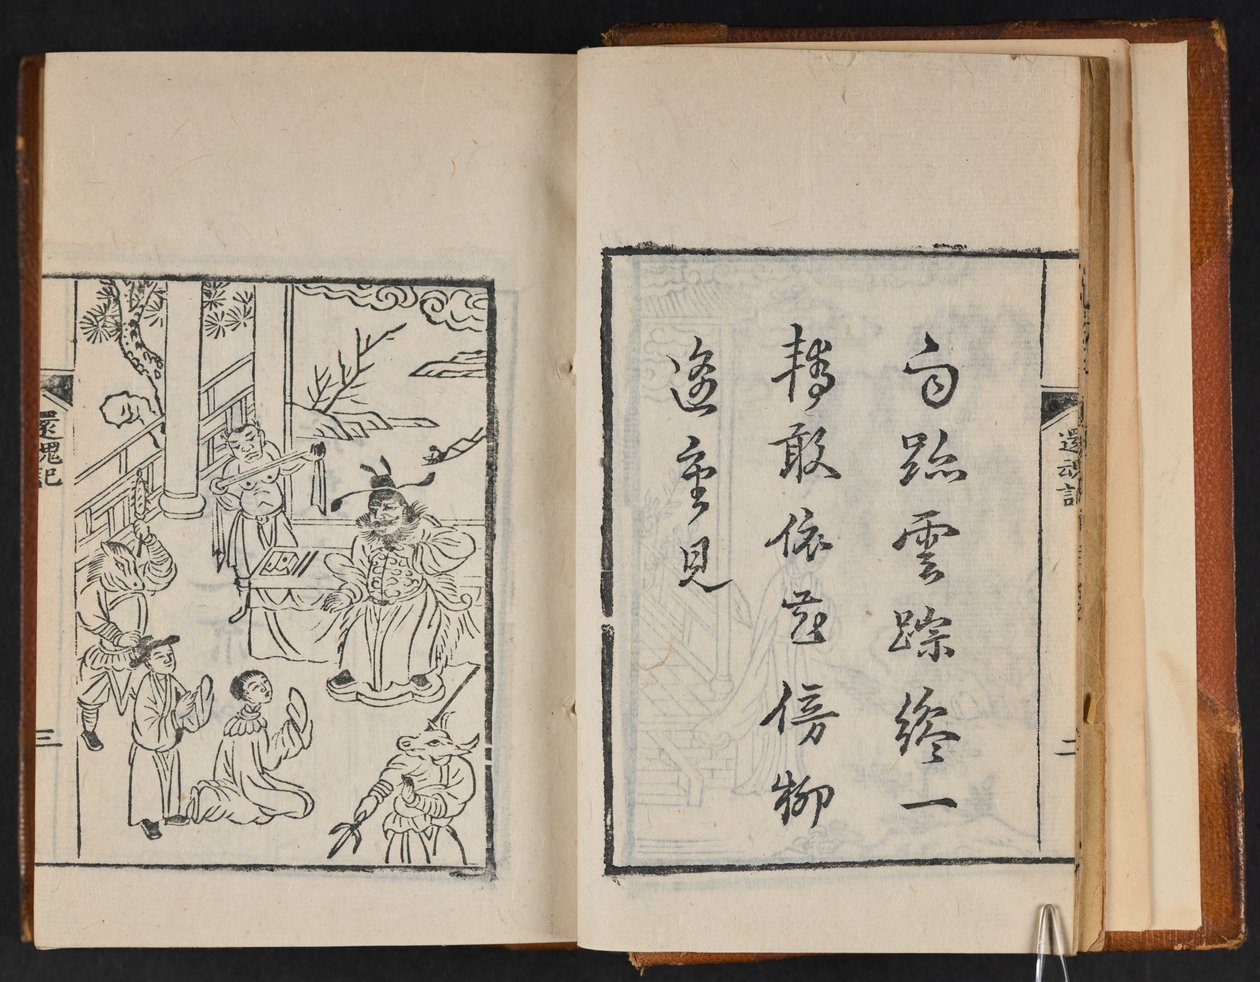 還魂記
二
雨跡雲踪纔一
轉敢依花傍柳
還重見
還魂記
三